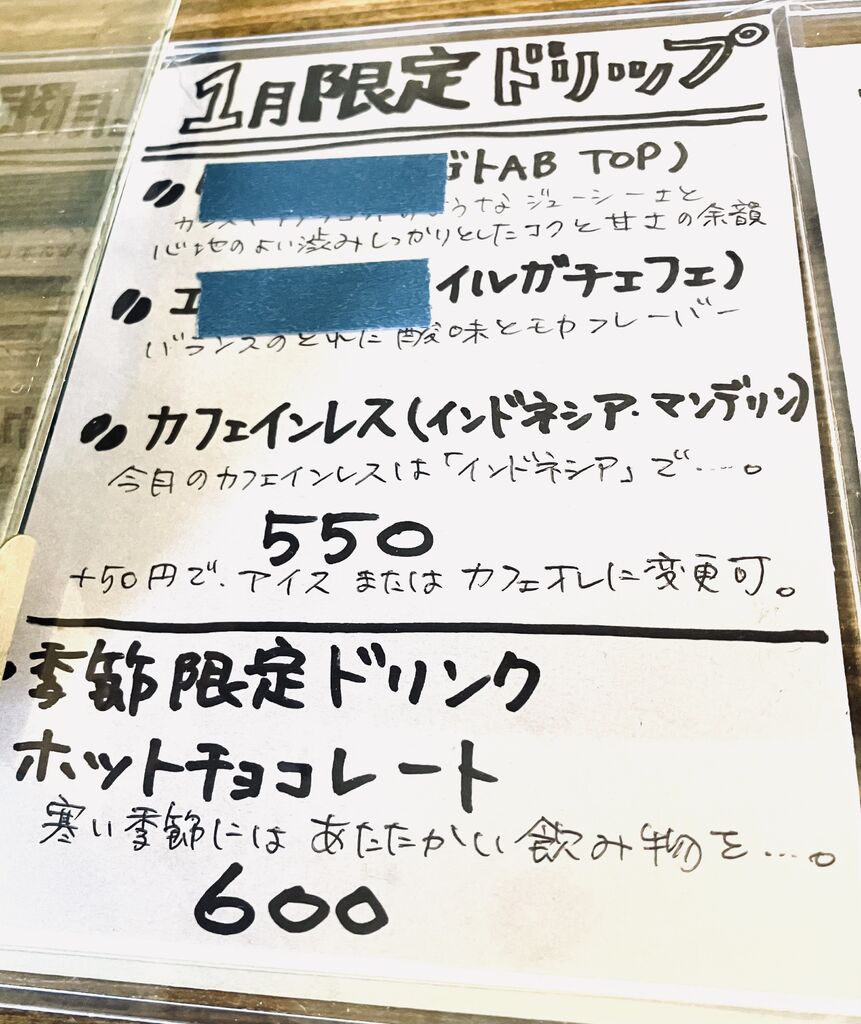 1月限定ドリップ
ゴトAB TOP)
うなジューシーさと
心地のよい渋みしっかりとしたコクと甘さの余韻
イルガチェフェ)
バランスのとれた酸味とモカフレーバー
カフェインレス(インドネシア・マンデリン)
今月のカフェインレスは「インドネシア」で….。
550
+50円で、アイスまたはカフェオレに変更可。
・季節限定ドリンク
ホットチョコレート
寒い季節にはあたたかい飲み物を….。
600